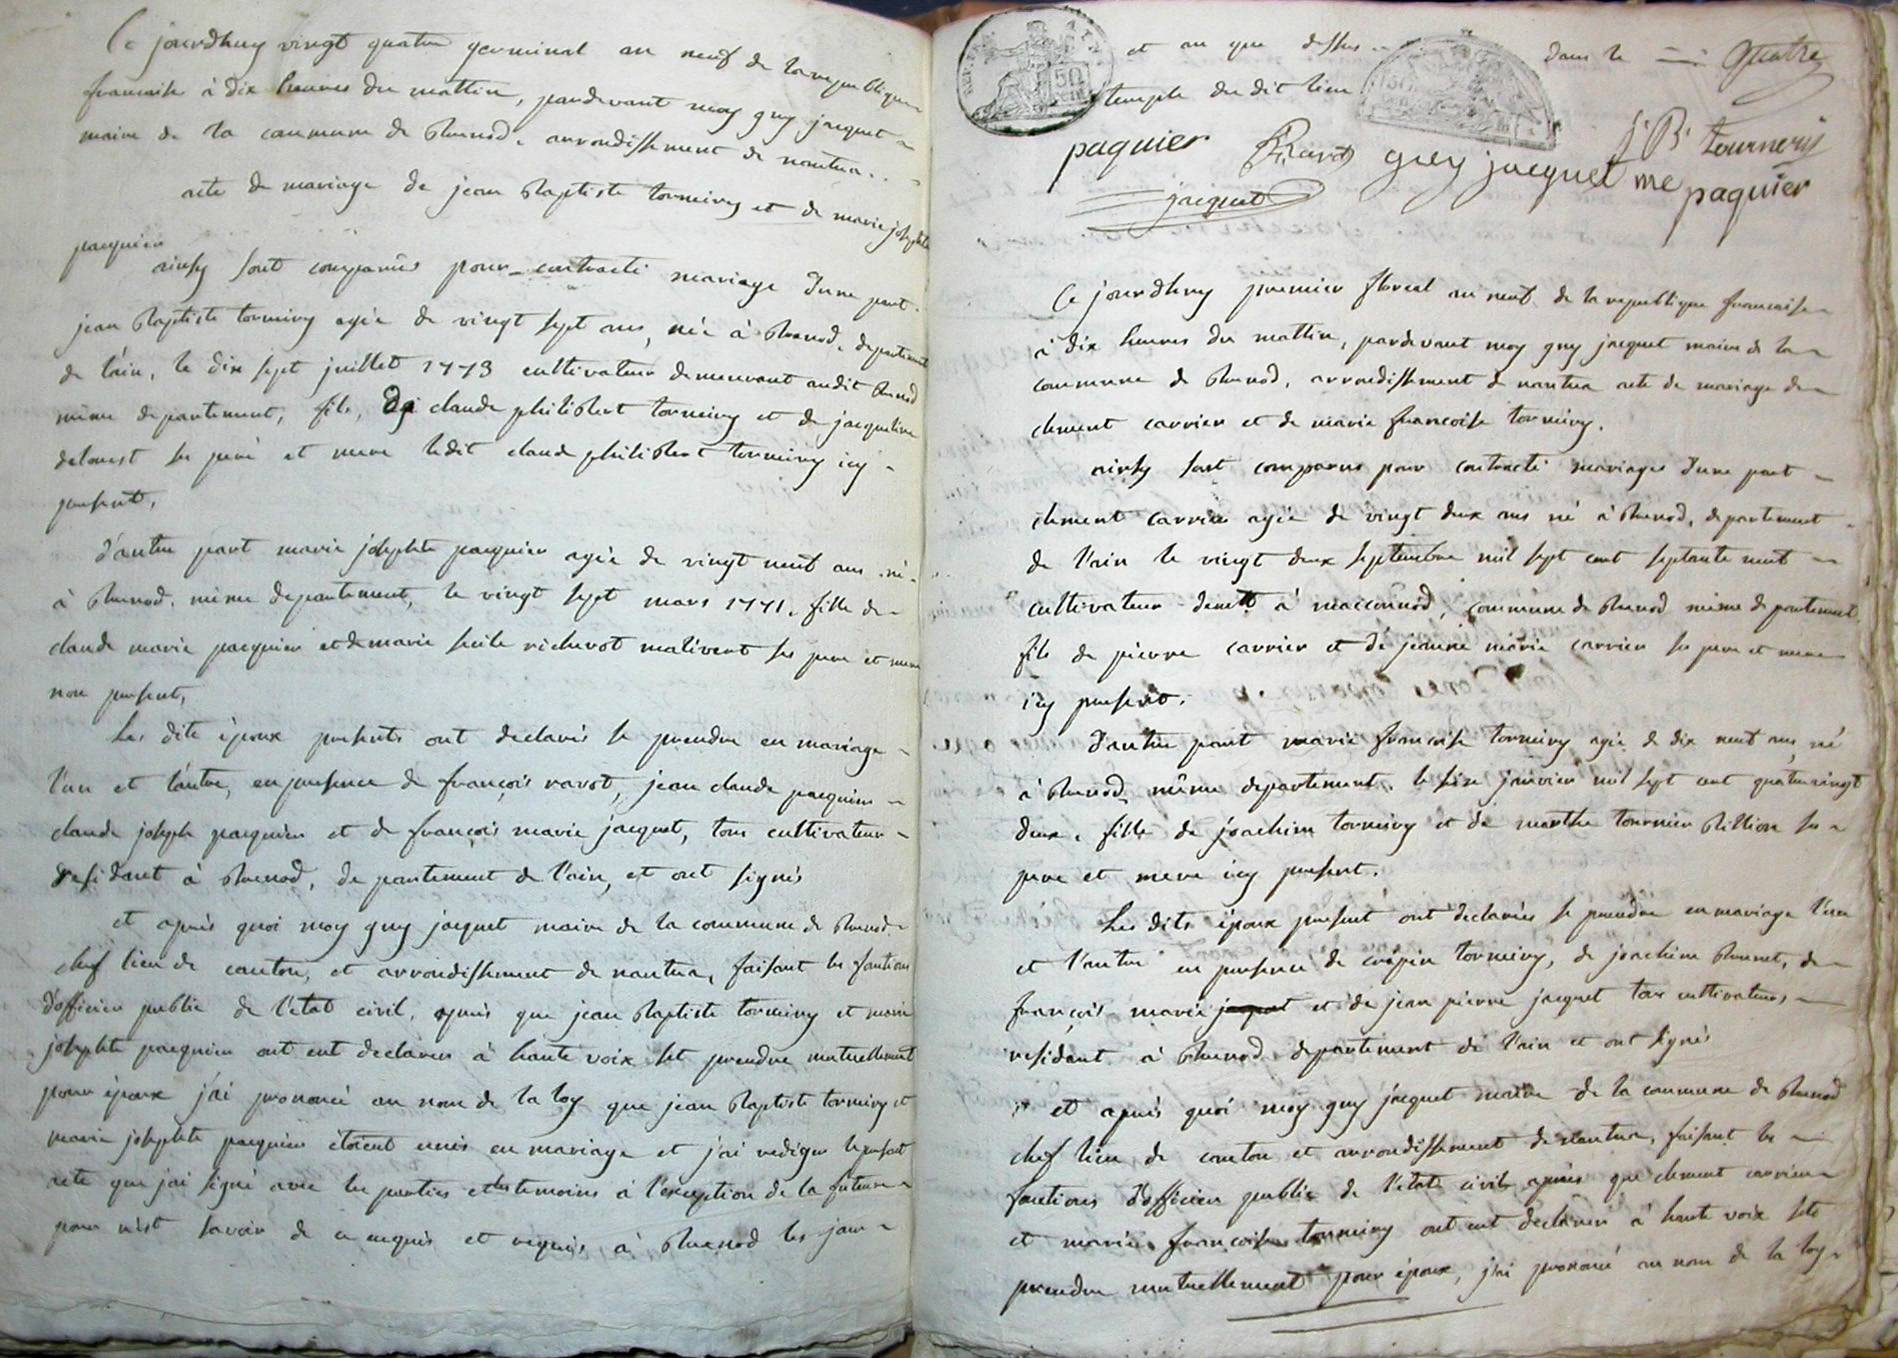 Ce jourdhuy vingt quatre germinal an neuf de la republique
francaise à dix heures du mattin, pardevant moy guy jacquet
maire de la commune de Brenod, arrondissement de nantua..
acte de mariage de jean Baptiste torniery et de marie josephte
pacquier
ainsy sont comparus pour contracté mariage d'une part
jean Baptiste torniery agée de vingt sept ans, née à Brenod, departement
de l'ain, le dix sept juillet 1773 cultivateur demeurant audit Brenod
même departement, fils, de claude philibert torniery et de jacqueline
se peré et mere ledit claude philibert torniery icy
present,
d'autre part marie josephte pacquier agée de vingt neuf ans né
à Brenod, même departement, le vingt sept mars 1771, fille de
claude marie pacquier et de marie secile ses pere et mere
non present,
Les dits époux presents ont declarés se prendre en mariage
l'un et l'autre, en presence de françois ravot, jean claude pacquier
claude joseph pacquier et de françois marie jacquet, tous cultivateur
residant à Brenod, departement de l'ain, et ont signés
et aprés quoi moy guy jacquet maire de la commune de Brenod
chef lieu de canton, et arrondissement de nantua, faisant les fonctions
d'officier public de l'état civil, aprés que jean Baptiste torniery et marie
josephte pacquier ont eut declarer à haute voix se prendre mutuellement
pour époux j'ai prononcé au nom de la loy que jean Baptiste torniery et
marie josephte pacquier étoient unis en mariage et j'ai rediger le present
acte que j'ai signé avec les parties et les temoins à l'exception de la future
pour n'est savoir de ce enquis et requis, à Brenod les jour
et an que dessus .. dans le quatre
temple du dit lieu
paquier Ravot guy jacquet me J B tournery
jacquet paquier
Ce jourdhuy premier floreal an neuf de la republique francaise
à dix heures du mattin, pardevant moy guy jacquet maire de la
commune de Brenod, arrondissement de nantua acte de mariage de
clement carrier et de marie francoise torniery.
ainsy sont comparus pour contracté mariages d'une part
clement carrier agée de vingt deux ans né à Brenod, departement
de l'ain le vingt deux septembre mil sept cent septante neuf
cultivateur à macconnod, commune de Brenod même departement
fils de pierre carrier et de jeanne marie carrier se pere et mere
icy present.
d'autre part marie francoise torniery agée de dix neuf ans, né
à Brenod, même departement, le janvier mil sept cent quatre vingt
deux, fille de joachim torniery et de marthe tournier Billion se
pere et mere icy present.
Les dits époux present ont declarées se prendre en mariage l'un
et l'autre en presence de crépin torniery, de joachim Brunet, de
françois marie jacquet et de jean pierre jacquet tous cultivateurs
residant à Brenod departement de l'ain et ont signés
et aprés quoi moy guy jacquet maire de la commune de Brenod
chef lieu de canton et arrondissement de nantua, faisant les
fonctions d'officier public de l'etat civil aprés que clement carrier
et marie francoise torniery ont eut declarer à haute voix se
prendre mutuellement pour époux, j'ai prononcé au nom de la loy